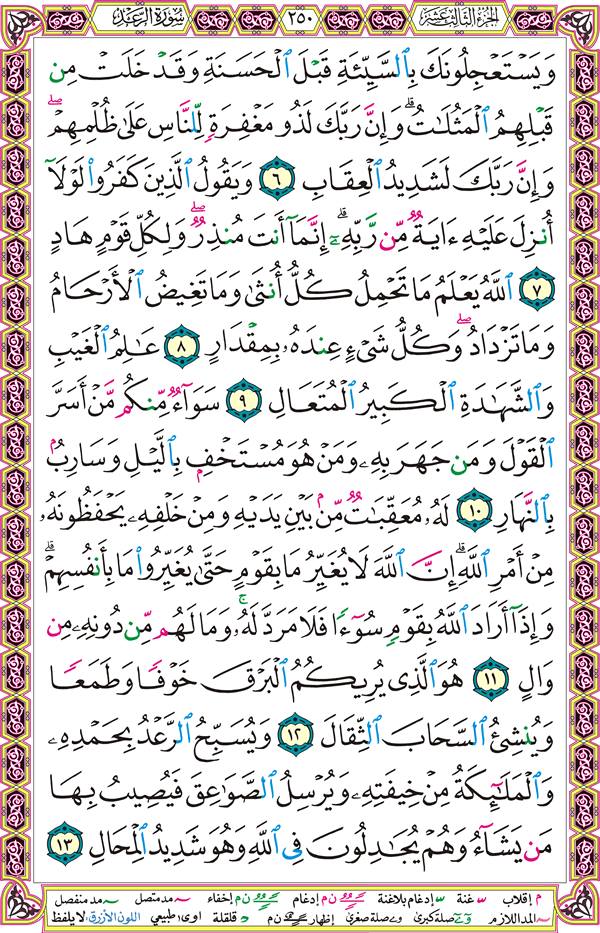 الجزء الثالث عشر ٢٥٠ سورة الرعد
وَيَسْتَعْجِلُونَكَ بِٱلسَّيِّئَةِ قَبْلَ ٱلْحَسَنَةِ وَقَدْ خَلَتْ مِن
قَبْلِهِمُ ٱلْمَثُلَـٰتُ ۗ وَإِنَّ رَبَّكَ لَذُو مَغْفِرَةٍ لِّلنَّاسِ عَلَىٰ ظُلْمِهِمْ ۖ
وَإِنَّ رَبَّكَ لَشَدِيدُ ٱلْعِقَابِ ٦ وَيَقُولُ ٱلَّذِينَ كَفَرُوا۟ لَوْلَآ
أُنزِلَ عَلَيْهِ ءَايَةٌ مِّن رَّبِّهِۦٓ ۗ إِنَّمَآ أَنتَ مُنذِرٌ ۖ وَلِكُلِّ قَوْمٍ هَادٍ
٧ ٱللَّهُ يَعْلَمُ مَا تَحْمِلُ كُلُّ أُنثَىٰ وَمَا تَغِيضُ ٱلْأَرْحَامُ
وَمَا تَزْدَادُ ۖ وَكُلُّ شَىْءٍ عِندَهُۥ بِمِقْدَارٍ ٨ عَـٰلِمُ ٱلْغَيْبِ
وَٱلشَّهَـٰدَةِ ٱلْكَبِيرُ ٱلْمُتَعَالِ ٩ سَوَآءٌ مِّنكُم مَّنْ أَسَرَّ
ٱلْقَوْلَ وَمَن جَهَرَ بِهِۦ وَمَنْ هُوَ مُسْتَخْفٍۭ بِٱلَّيْلِ وَسَارِبٌۢ
بِٱلنَّهَارِ ١٠ لَهُۥ مُعَقِّبَـٰتٌ مِّنۢ بَيْنِ يَدَيْهِ وَمِنْ خَلْفِهِۦ يَحْفَظُونَهُۥ
مِنْ أَمْرِ ٱللَّهِ ۗ إِنَّ ٱللَّهَ لَا يُغَيِّرُ مَا بِقَوْمٍ حَتَّىٰ يُغَيِّرُوا۟ مَا بِأَنفُسِهِمْ ۗ
وَإِذَآ أَرَادَ ٱللَّهُ بِقَوْمٍ سُوٓءًا فَلَا مَرَدَّ لَهُۥ ۚ وَمَا لَهُم مِّن دُونِهِۦ مِن
وَالٍ ١١ هُوَ ٱلَّذِى يُرِيكُمُ ٱلْبَرْقَ خَوْفًا وَطَمَعًا
وَيُنشِئُ ٱلسَّحَابَ ٱلثِّقَالَ ١٢ وَيُسَبِّحُ ٱلرَّعْدُ بِحَمْدِهِۦ
وَٱلْمَلَـٰٓئِكَةُ مِنْ خِيفَتِهِۦ وَيُرْسِلُ ٱلصَّوَٰعِقَ فَيُصِيبُ بِهَا
مَن يَشَآءُ وَهُمْ يُجَـٰدِلُونَ فِى ٱللَّهِ وَهُوَ شَدِيدُ ٱلْمِحَالِ ١٣
م إقلاب غنة إدغام بلاغنة ن م إدغام ن م إخفاء مد متصل مد منفصل
المد اللازم صلة كبرى صلة صغرى إظهار ن م قلقلة اوى: طبيعي اللون الأزرق: لا يلفظ